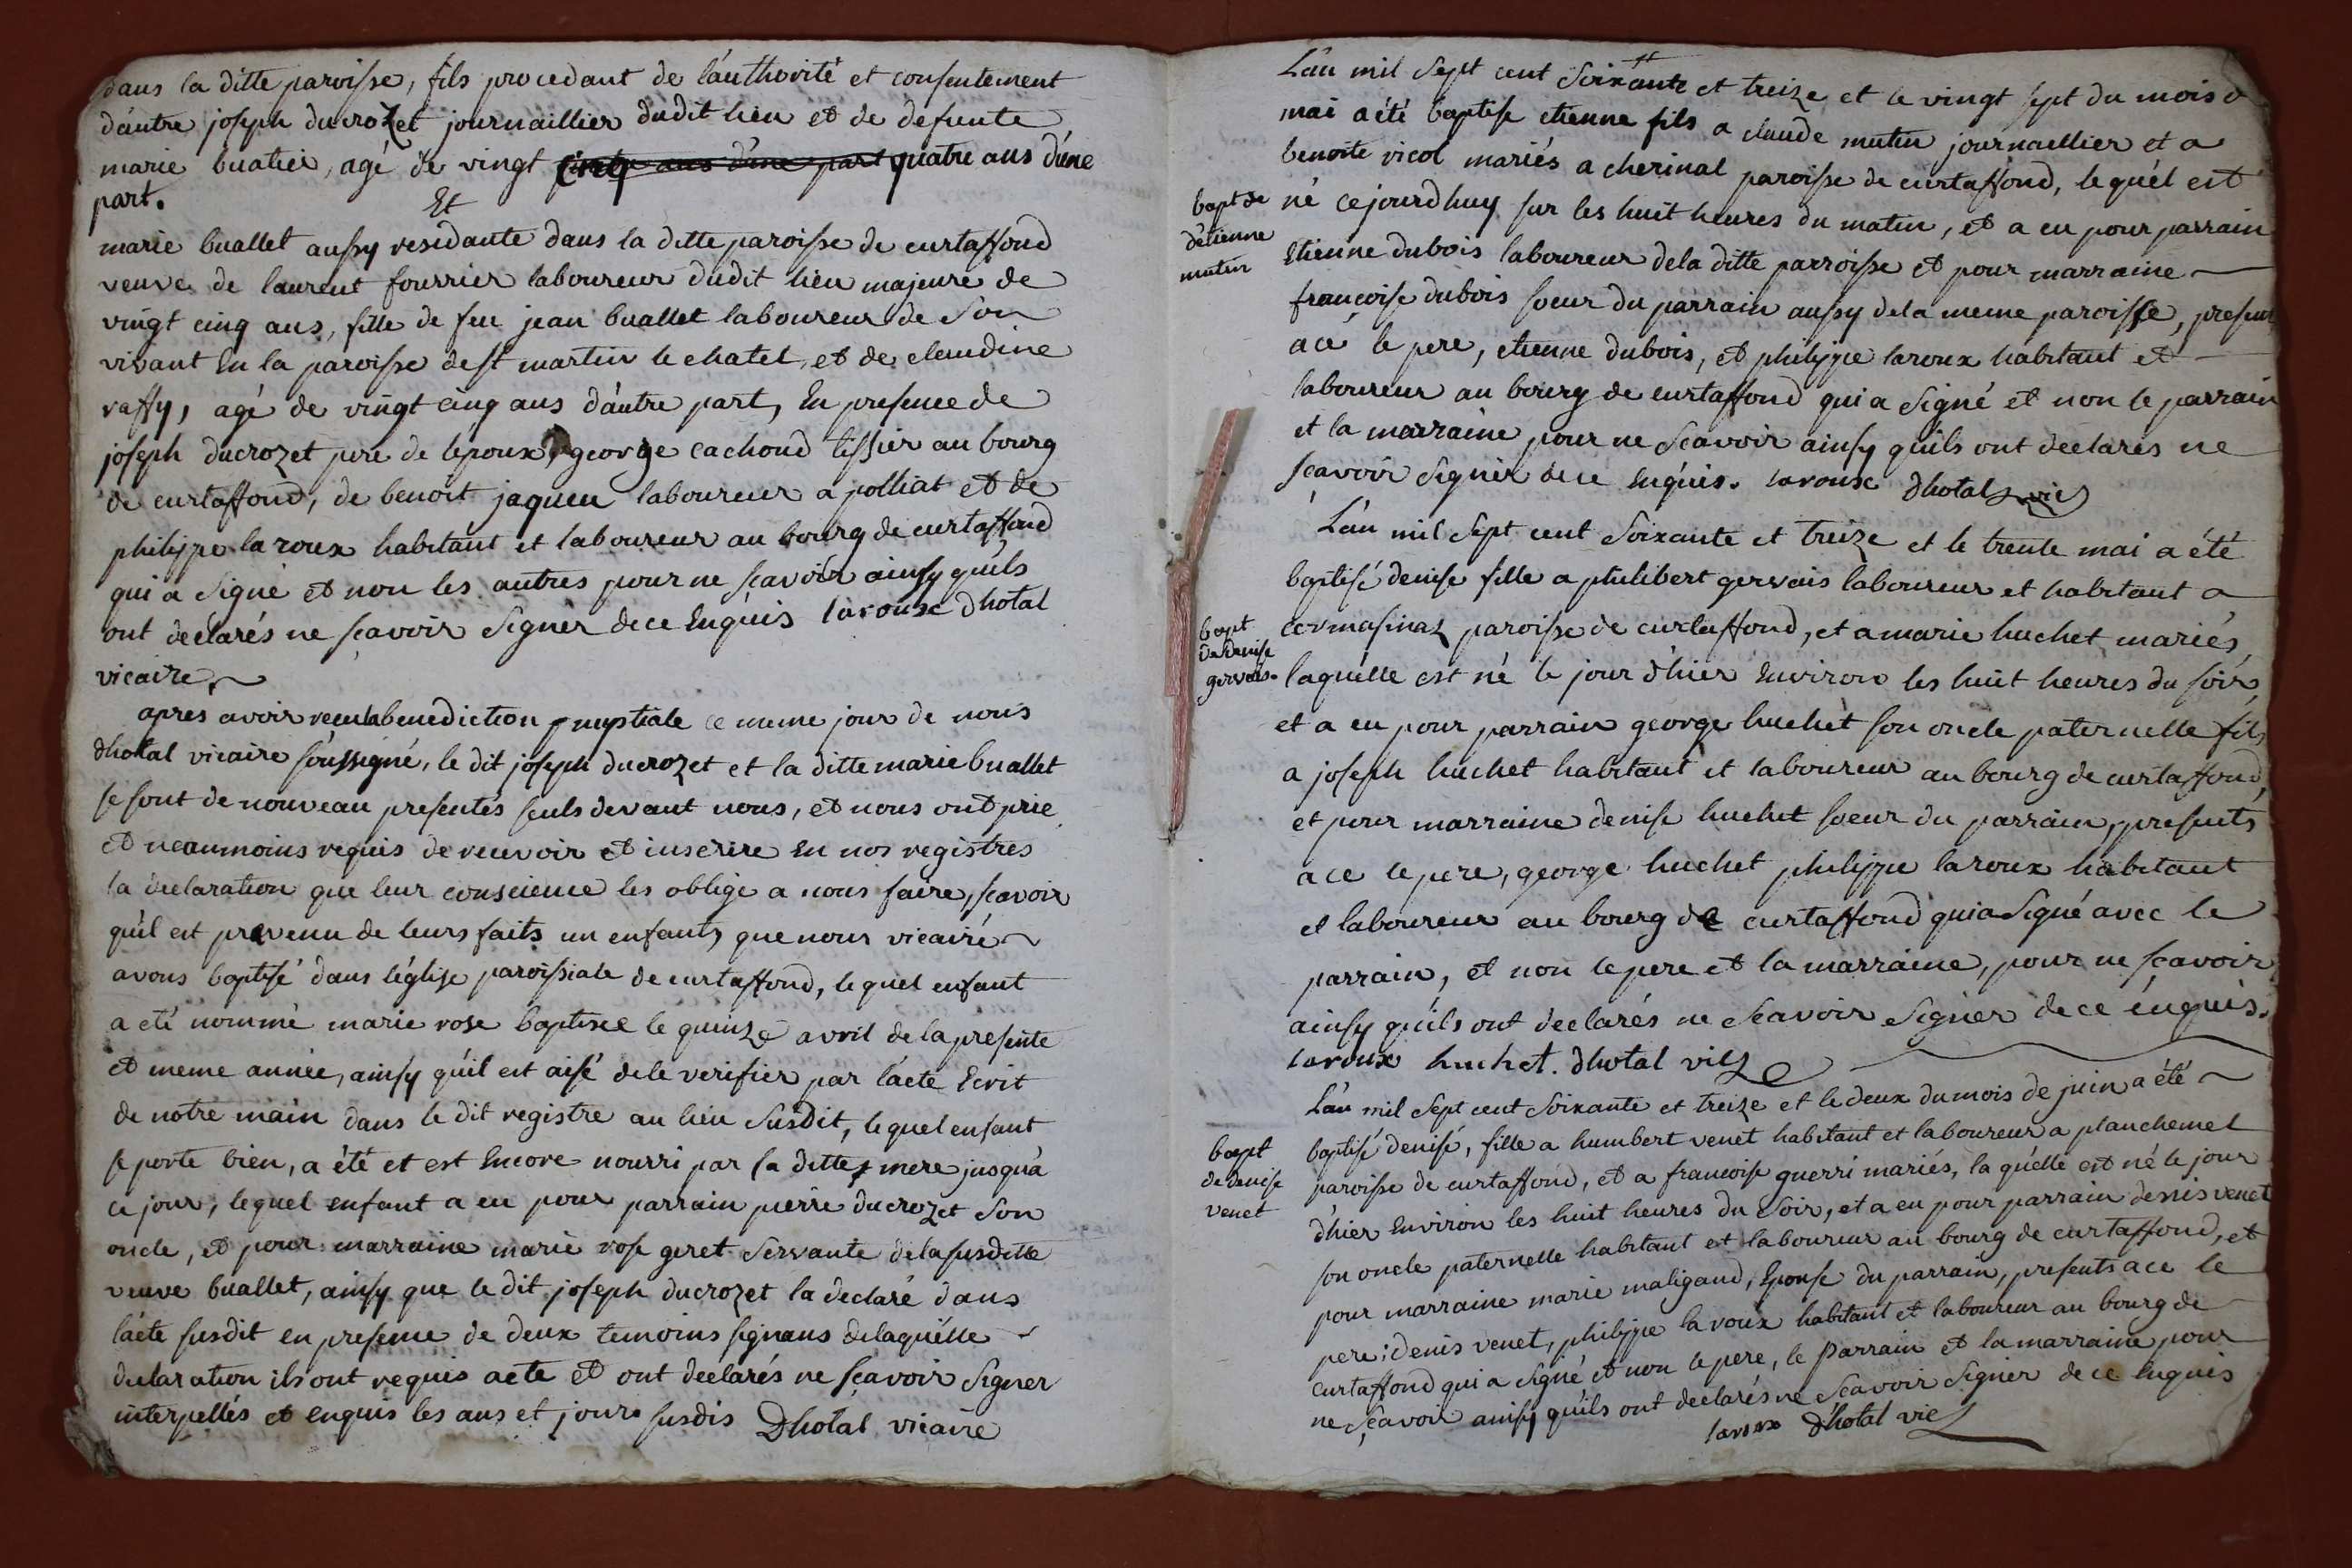 dans la ditte paroisse, fils procedant de l'authorité et consentement
d'autre joseph ducrozet journaillier dudit lieu et de defunte
marie buatier, agé de vingt cinq ans d'une part quatre ans d'une
part.
Et
marie buallet aussy residante dans la ditte paroisse de curtaffond
veuve de laurent fourrier laboureur dudit lieu majeure de
vingt cinq ans, fille de feu jean buallet laboureur de son
vivant En la paroisse de st martin le chatel, et de claudine
raffy, agé de vingt cinq ans d'autre part, En presence de
joseph ducrozet pere de lepoux, george cachoud tissier au bourg
de curtaffond, de benoit jaqueu laboureur a polliat et de
philippe la roux habitant et laboureur au bourg de curtaffond
qui a signé et non les autres pour ne scavoir ainsy quils
ont declarés ne scavoir signer de ce Enquis laroux dhotal
vicaire
apres avoir recu la benediction nuptiale ce meme jour de nous
dhotal vicaire soussigné, le dit joseph ducrozet et la ditte marie buallet
se sont de nouveau presentés seuls devant nous, et nous ont prie
et neanmoins requis de recevoir et inscrire En nos registres
la declaration que leur conscience les oblige a nous faire, scavoir
qu'il est prevenu de leurs faits un enfant, que nous vicaire
avons baptisé dans l'église paroissiale de curtaffond, lequel enfant
a eté nommé marie rose baptisee le quinze avril de la presente
et meme année, ainsy qu'il est aisé de le verifier par l'acte Ecrit
de notre main dans le dit registre au lieu susdit, lequel enfant
se porte bien, a été et est Encore nourri par la ditte mere jusqu'a
ce jour, lequel enfant a eu pour parrain pierre ducrozet son
oncle, et pour marraine marie rose geret servante de la susditte
veuve buallet, ainsy que le dit joseph ducrozet la declaré dans
l'acte susdit en presence de deux temoins signans de laquelle
declaration ils ont requis acte et ont declarés ne scavoir signer
interpellés et enquis les ans et jours susdis Dhotal vicaire
L'an mil sept cent soixante et treize et le vingt sept du mois d
mai a été baptise etienne fils a claude mutin journaellier et a
benoite vicol mariés a cherinal paroisse de curtaffond, lequel est
bapt de
d'etienne
mutin
né cejourdhuy sur les huit heures du matin, et a eu pour parrain
Etienne dubois laboureur de la ditte parroisse et pour marraine
francoise dubois soeur du parrain aussy de la meme paroisse, present
a cé le pere, etienne dubois, et philippe laroux habitant et
laboureur au bourg de curtaffond qui a signé et non le parrain
et la marraine pour ne scavoir ainsy quils ont declarés ne
scavoir signer de ce Enquis. laroux dhotal vic
L'an mil sept cent soixante et treize et le trente mai a été
baptisé denise fille a philibert gervais laboureur et habitant a
bapt
de denise
gervais.
cermasinaz paroisse de curtaffond, et a marie huchet mariés,
laquelle est né le jour d'hier Environ les huit heures du soir,
et a eu pour parrain george huchet son oncle paternelle fils
a joseph huchet habitant et laboureur au bourg de curtaffond,
et pour marraine denise huchet soeur du parrain, presents
a ce le pere, george huchet philippe laroux habitant
et laboureur au bourg de curtaffond qui a signé avec le
parrain, et non le pere et la marraine, pour ne scavoir
ainsy quils ont declarés ne scavoir signer de ce enquis.
laroux huchet. dhotal vic
L'an mil sept cent soixante et treize et le deux du mois de juin a été
bapt
de denise
venet
baptisé denise, fille a humbert venet habitant et laboureur a planchemel
paroisse de curtaffond, et a francoise guerri mariés, la quelle est né le jour
d'hier Environ les huit heures du soir, et a eu pour parrain denis venet
son oncle paternelle habitant et laboureur au bourg de curtaffond, et
pour marraine marie maligaud, Epouse du parrain, presents a ce le
pere, denis venet, philippe laroux habitant et laboureur au bourg de
curtaffond qui a signé et non le pere, le parrain et la marraine pour
ne scavoir ainsy quils ont declarés ne scavoir signer de ce Enquis
laroux dhotal vic